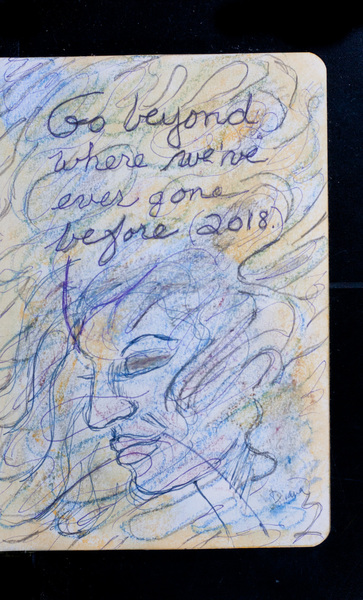 Go beyond
where we've
ever gone
before (2018.)